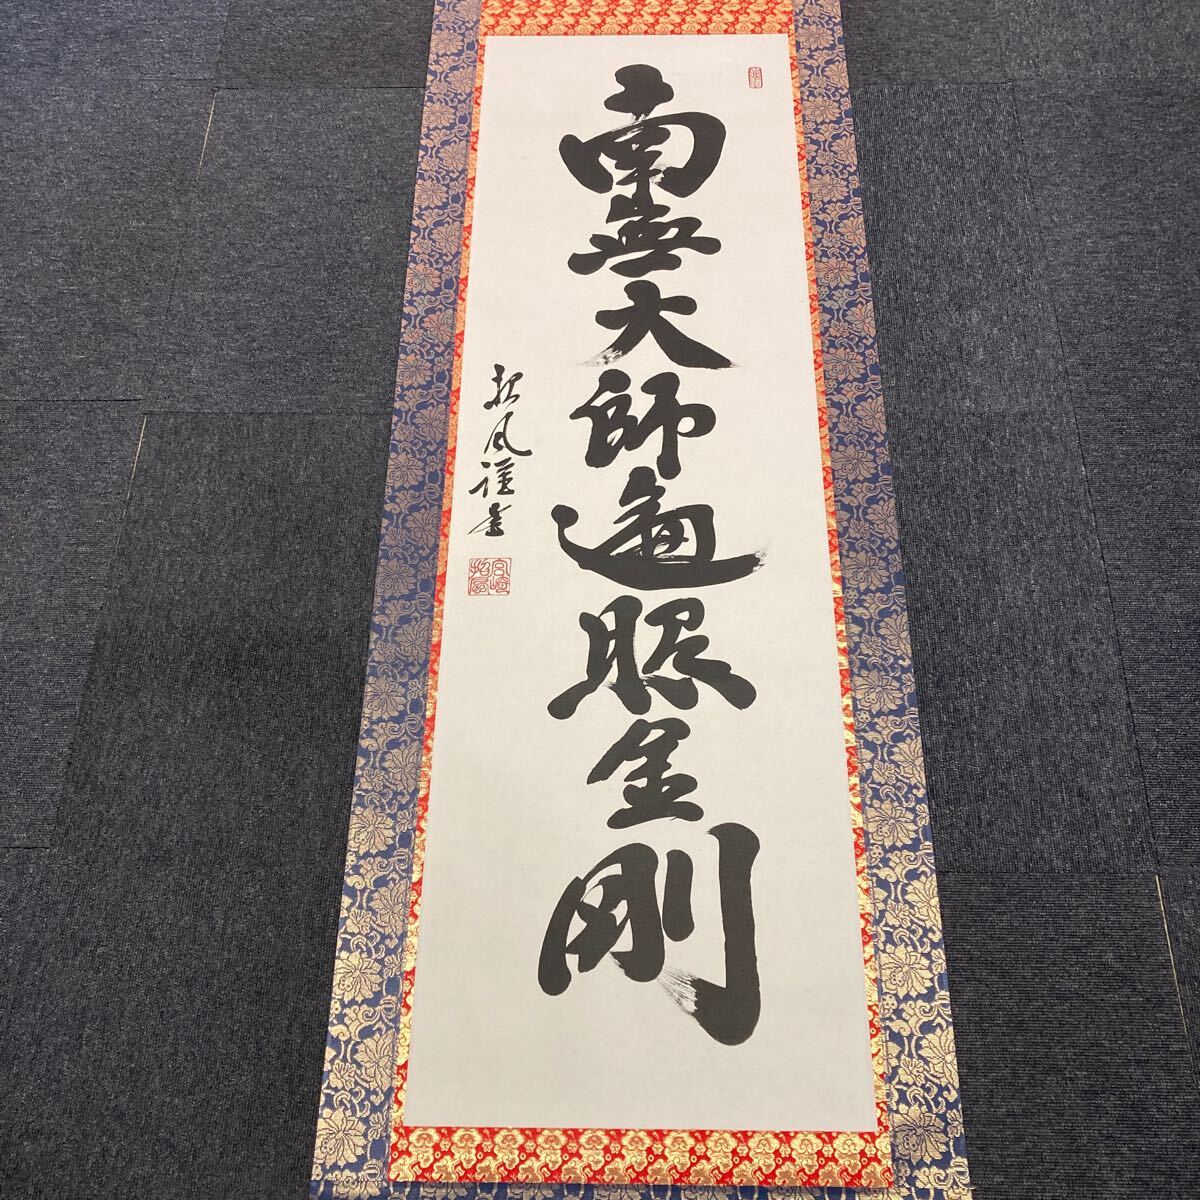 南無大師遍照金剛
松風謹書